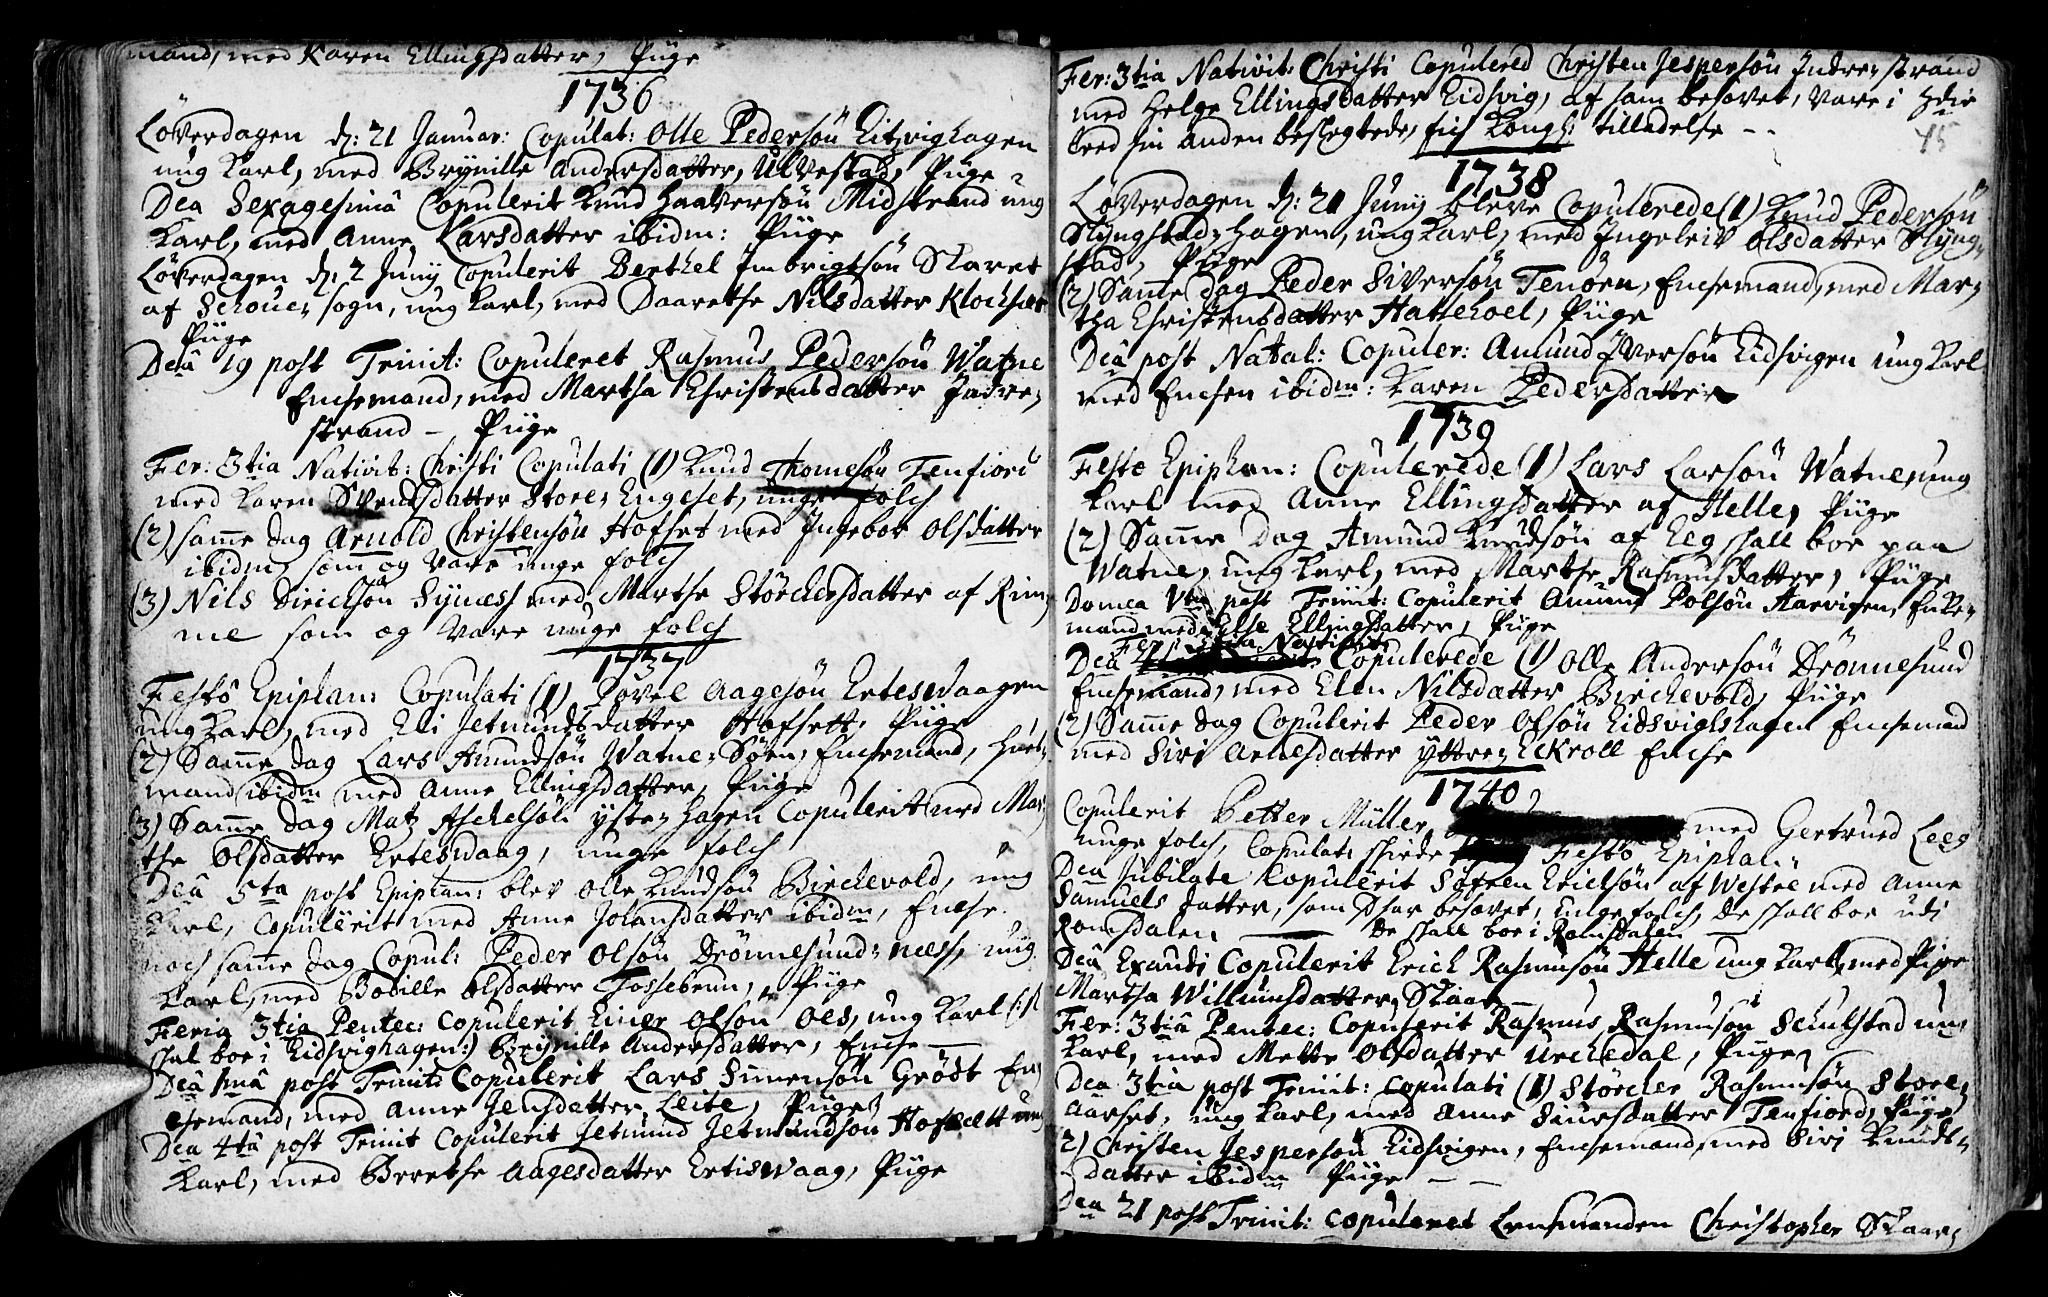 mand, med Karen Ellingsdatter, Piige
1736
Löverdagen d: 21 Januar: Copulat: Olle Pedersön Eitzvighagen
ung Karl, med Brynille Andersdatter, Ulvestad, Piige
Dca Sexagesimâ Copulerit Knud Haaversön Midstrand ung
Karl, med Anne Larsdatter ibidm: Piige
Löverdagen d: 2 Junij Copulerit Berthel Imbrigtsön Skaret
af Schoue, sogn, ung Karl, med Daarethe Nilsdatter Klochset
Piige
Dcâ 19 post Trinit: Copuleret Rasmus Pedersön Watne
Enchemand, med Martha Christensdatter Indre,
strand - Piige
Fer: 3tia Nativit: Christi Copulati (1) Knud Thomesön Tenfiord
med Karen Svendsdatter Store, Engeset, unge folch
(2) samme dag Arnold Christensön Hofset med Ingebor Olsdatter
ibidm, som og vare unge folch
(3) Nils Diricksön Synæss med Marthe Störckersdatter af Rim,
me som og vare unge folch
1737
Festô Epiphan: Copulati (1) Povel Aagesön Erteswaagen
ung Karl, med Eli Jetmundsdatter Hofsett, Piige
(2) Samme dag Lars Amundsön Watne, Sören, Enchemand,
mand ibidm med Anne Ellingsdatter, Piige
3) Samme dag Matz Aschelsön yste, Hagen Copulerit med Mar,
the Olsdatter Erteswaag, unge folch
Dcâ 5ta post Epiphan: blev Olle Knudsön Birchevold, ung
Karl, Copulerit med Anne Johansdatter ibidm, Enche.
noch samme dag Copul: Peder Olsön Drönnesund, næss, ung
Karl, med Bodille Olsdatter Fossebrun, Piige
Feria 3tia Pentec: Copulerit Einer Olsön Oes, ung Karl (:
skal boe i Eidsvighagen:) Brynille Andersdatter, Enche
Dcâ 1mâ post Trinit: Copulerit Lars Simensön Grödt En,
chemand, med Anne Jensdatter Leite, Piige
Dca 4tâ post Trinit Copulerit Jetmund Jetmundsön Hofsett ung
Karl, med Brrethe Aagesdatter Ertiswaag, Piige
Fer: 3tia Nativit: Christi Copulered Christen Jespersön Indre, strand
med Helge Ellingsdatter Eidsvig, af som besovet, vare i 3die
leed hin anden beslegtede, fich Kongl: tilladelse --
45
1738
Löverdagen d: 21 Junij bleve Copulerede (1) Knud Pedersön
Slyngstad, Hagen, ung Karl, med Ingeleiv Olsdatter Slyng,
stad, Piige
(2) Samme dag Peder Siversön Tenören, Enchemand, med Mar,
tha Christensdatter Hattehoel, Piige
Dcâ post Natal: Copuler: Amund Iversön Eidsvigen ung Karl
med Enchen ibidm: Karen Pedersdatter
1739
Festo Epiphan: Copulerede (1) Lars Larsön Watne, ung
Karl med Anne Ellingsdatter af Helle, Piige
(2) Samme dag Amund Knudsön af Eeg skall boe paa
Watne, ung Karl, med Marthe Rasmusdatter, Piige
Domca post Trinit: Copulerit Amund Polsön Harvigen, Enke,
mand med Else Ellingsdatter, Piige
Fer: 3tia Nativit:
Dca Copulerede (1) Olle Andersön Drönnesund
Enchemand, med Elen Nilsdatter Birchevold, Piige
(2) Samme dag Copulerit Peder Olsön Eidsvighshagen Enchemand
med Siri Arnesdatter yttre, Eckroll Enche
1740
Copulerit Petter Müller, med Gertrued Leeg
unge folch, Copulat: skiede Festô Epiphan:
Dca Jubilate Copulerit Söfren Ericksön af Westre med Anne
Samuels datter, som Dhar besovet, unge folch, de skall boe udi
Romsdalen De skall boe i Romsdalen
Dcâ Exaudi Copulerit Erich Rasmusön Helle ung Karl, med Pige
Martha Willumsdatter, Skaar
Fer: 3tiâ Pentec: Copulerit Rasmus Rasmusön Schulstad ung
Karl, med Mette Olsdatter Urchedal, Piige
Dca 3tia post Trinit: Copulati (1) Störcker Rasmusön Store,
aarset, ung Karl, med Anne Saursdatter Tenfiord, Piige
2) Christen Jespersön Eidsvigen, Enchemand, med Siri Knuds,
datter ibidm Piige - -
Dca 21 post Trinit: Copuleret Lensmanden Christopher Skaar,